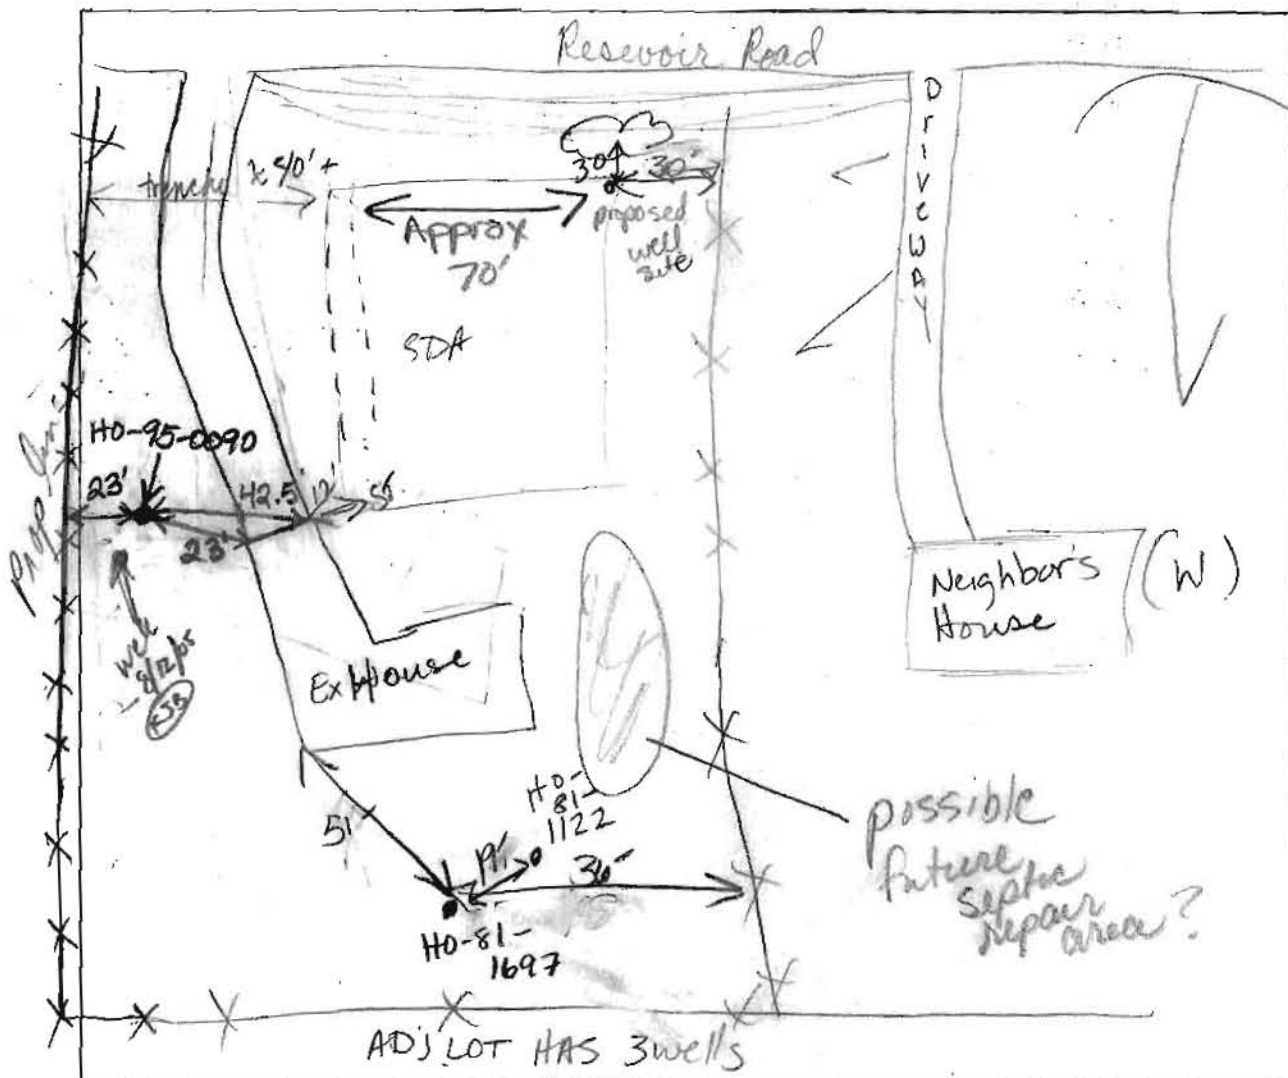 Resevoir Road
DriveWAY
trench
40' +
30'
30'
Approx
70'
proposed
well
site
SDA
Prop. line
HO-95-0090
23'
42.5'
12'
23'
well
8/12/05
Ex House
Neighbor's
House
(W)
HO-
81-
1122
51'
19'
36'
HO-81-
1697
possible
future
septic
repair
area?
ADJ LOT HAS 3 wells